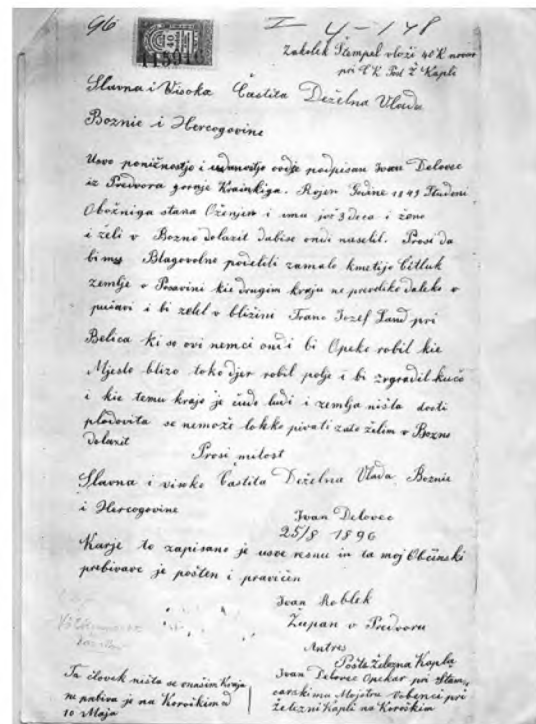 96
I 4-148
40
115910
Zakolek Stempel vloži 40 K novov
pri C. K. Post Ž. Kapli
Slavna i Visoka Častita Deželna Vlada
Boznie i Hercogovine
Usvo poničnostjo i udanostjo ovdje podpisan Ivan Delovec
iz Predvora goraje Krainkiga. Rojen Godine 1849 Studeni
Obožniga stana Oženjen i imu još 3 dece i ženo
i želi v Bozno dolazit dabise ondi naselil. Prosi da
bi mu Blagovolno podelili zamalo kmetijo Čitluk
zemlje v Posavini kie drugim kraju ne prevdiko daleko v
pušavi i bi zelel v bližini Franc Jozef Land pri
Belica ki so ovi nemci ondi bi Opeko robil kie
Mjesto blizo tokodjer robil polje i bi zrgradil kučo
i kie temu kraje je čudo ludi i zemlja ništa dosti
plodovita se nemože lokko pivati zato želim v Bozno
dolazit
Prosi milost
Slavna i visoko Častita Deželna Vlada Boznie
i Hercogovine
Ivan Delovec
25/8 1896
Karje to zapisano je usve resnu in ta moj Občinski
prebivavc je pošten i pravičen
Ivan Roblek
Župan v Predvoru
Antres
Pošta železna Kapla
Ivan Delovec Opekar pri
carskimu Mojstru Vobenci pri
železni Kapli na Koroškim
Ta človek ništa se onašim Kraja
ne pabiva je na Koroškim od
10 Maja